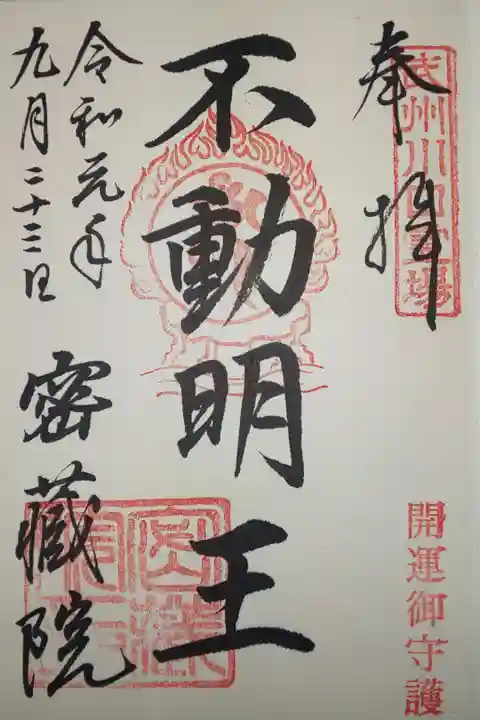 奉拝
武州川口霊場
開運御守護
不動明王
令和元年
九月二十三日
密蔵院